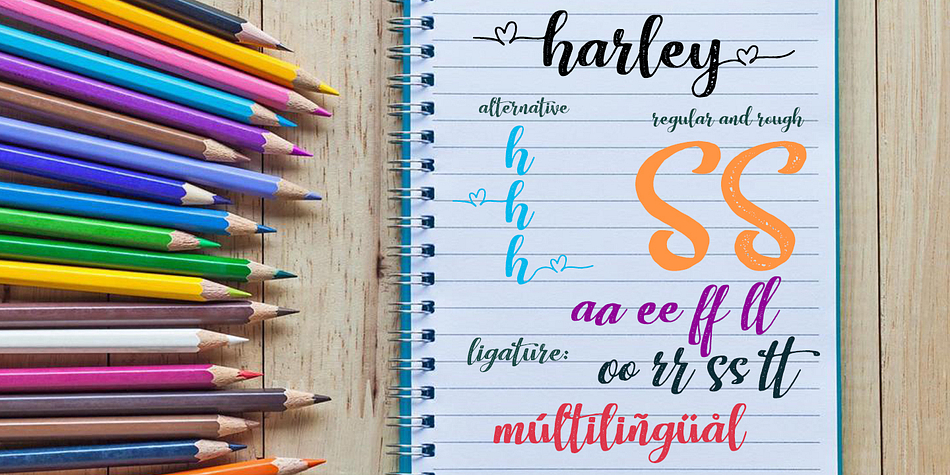 harley
alternative
h
h
h
regular and rough
SS
aa ee ff ll
ligature:
oo rr ss tt
múltiliñgüål